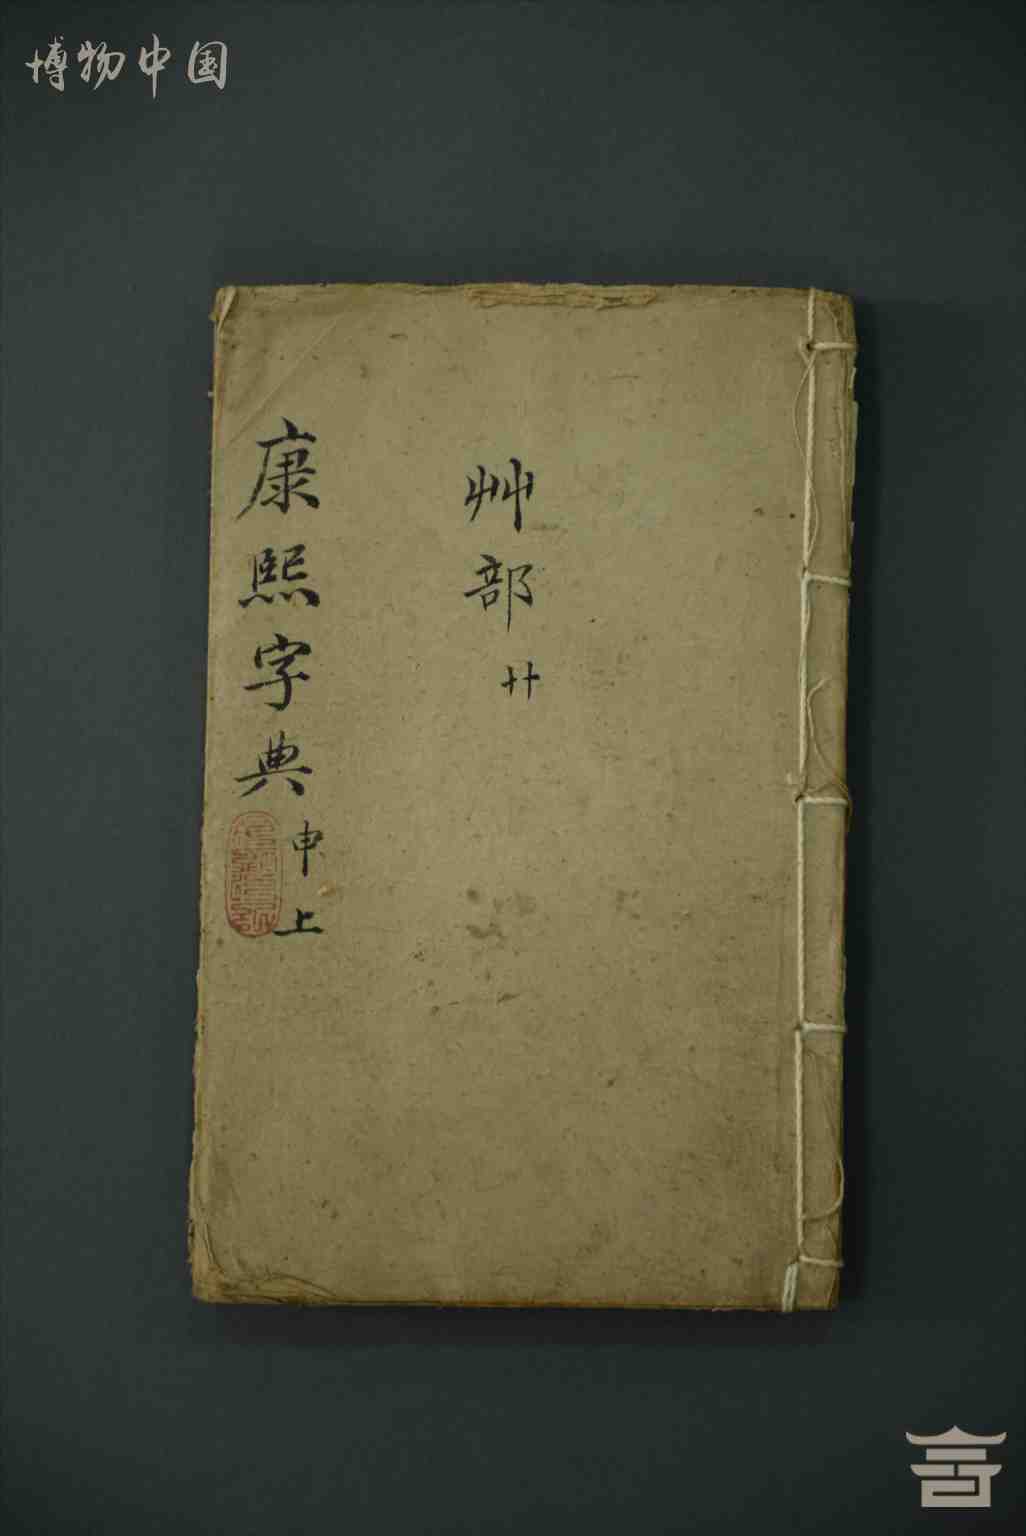 博物中国
艸部
廿
康熙字典
申上